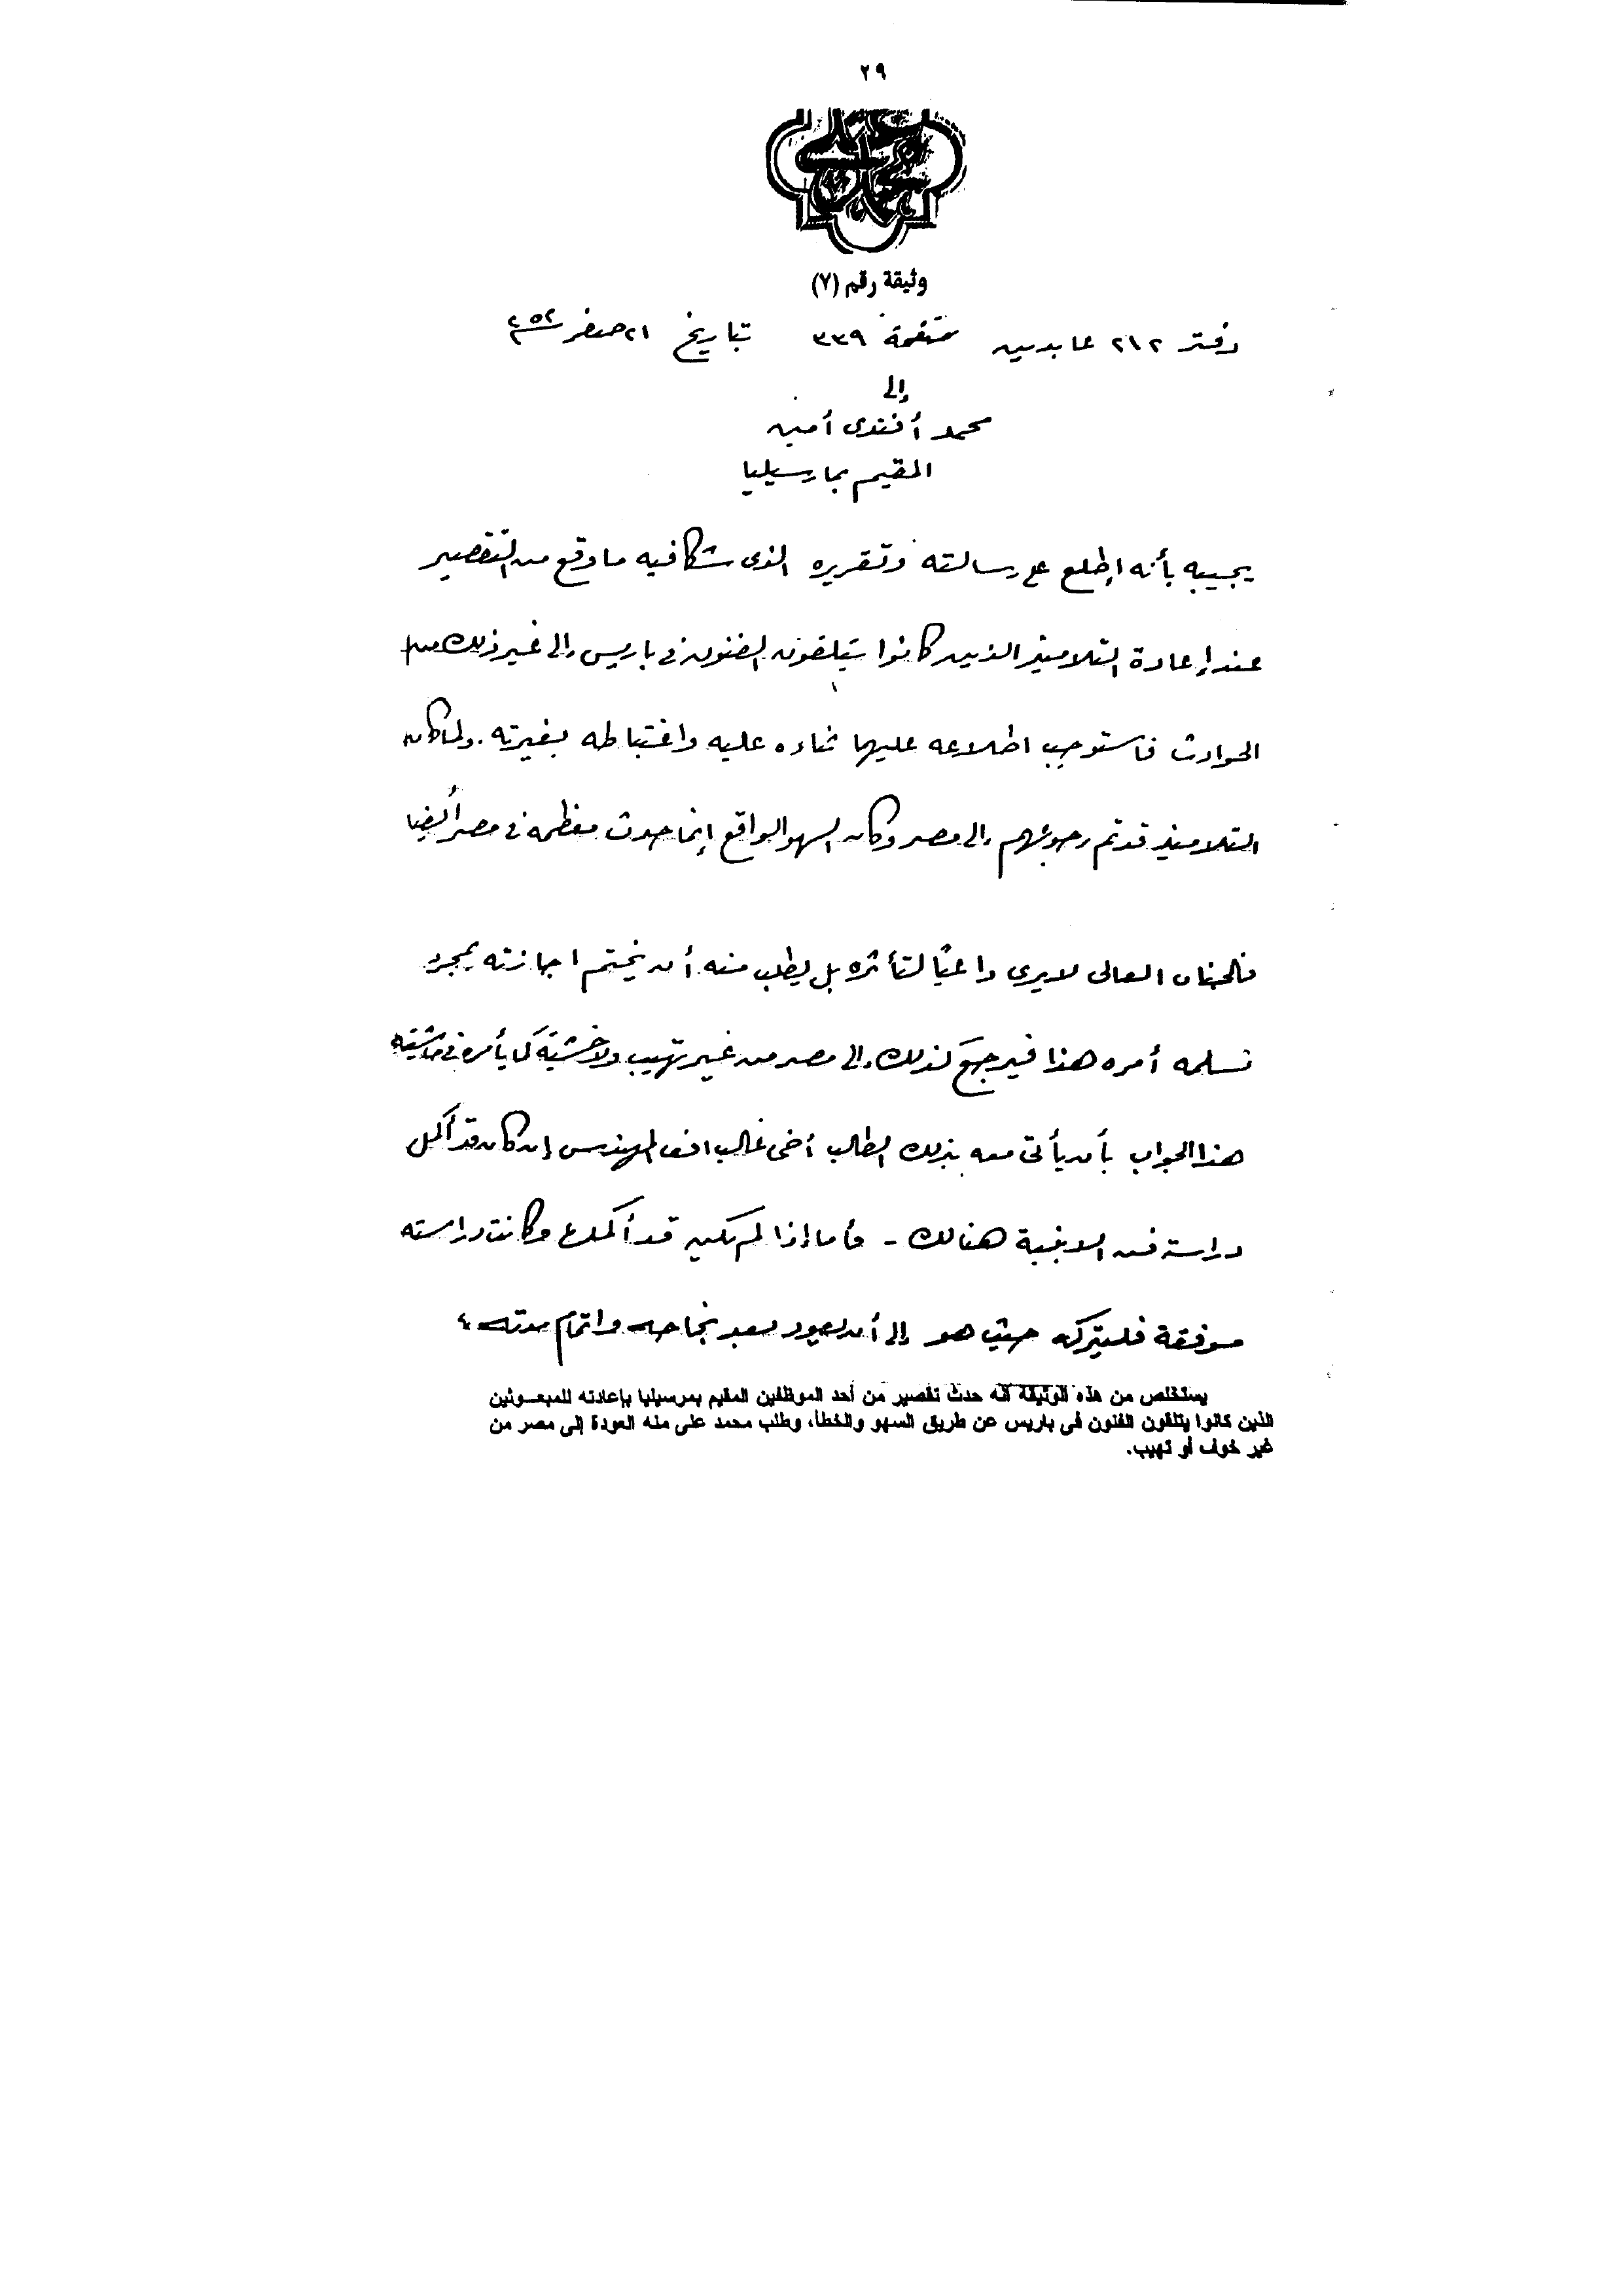 ٢٩
محمد علي
وثيقة رقم (٧)
دفتر ٢١٢ عابدين صفحة ٣٣٩ بتاريخ ٢١ صفر ٢٥٢
إلى
محمد أفندى أمين
المقيم بمارسيليا
يجيبه بأنه إطلع على رسالته وتقريره الذى شكا فيه ما وقع من التقصير
عند إعادة التلاميذ الذين كانوا يتلقون الفنون فى باريس إلى غير ذلك من
الحوادث فاستوجب اطلاعه عليها ثناءه عليه واغتباطه بغيرته. ولما كان
التلاميذ قد تم رجوعهم إلى مصر وكان السهو الواقع إنما حدث معظمه فى مصر أيضا
فالجناب العالى لا يرى داعيًا لتأثره بل يطلب منه أن يختم اجازته بمجرد
تسلمه أمره هذا فيرجع كذلك إلى مصر من غير تهيب ولا خشية كما يأمره فى حاشية
هذا الجواب بأن يأتى معه بذلك الطالب أخى غالب افندى المهندس إن كان قد أكمل
دراسة فن الأبنية هنالك - فأما إذا لم يكن قد أكملها وكانت دراسته
موفقة فليتركه حيث هو إلى أن يعود بعد نجاحه واتمام مدته
يستخلص من هذه الوثيقة أنه حدث تقصير من أحد الموظفين المقيم بمرسيليا بإعادته للمبعوثين
الذين كانوا يتلقون الفنون فى باريس عن طريق السهو والخطأ، وطلب محمد على منه العودة إلى مصر من
غير خوف أو تهيب.